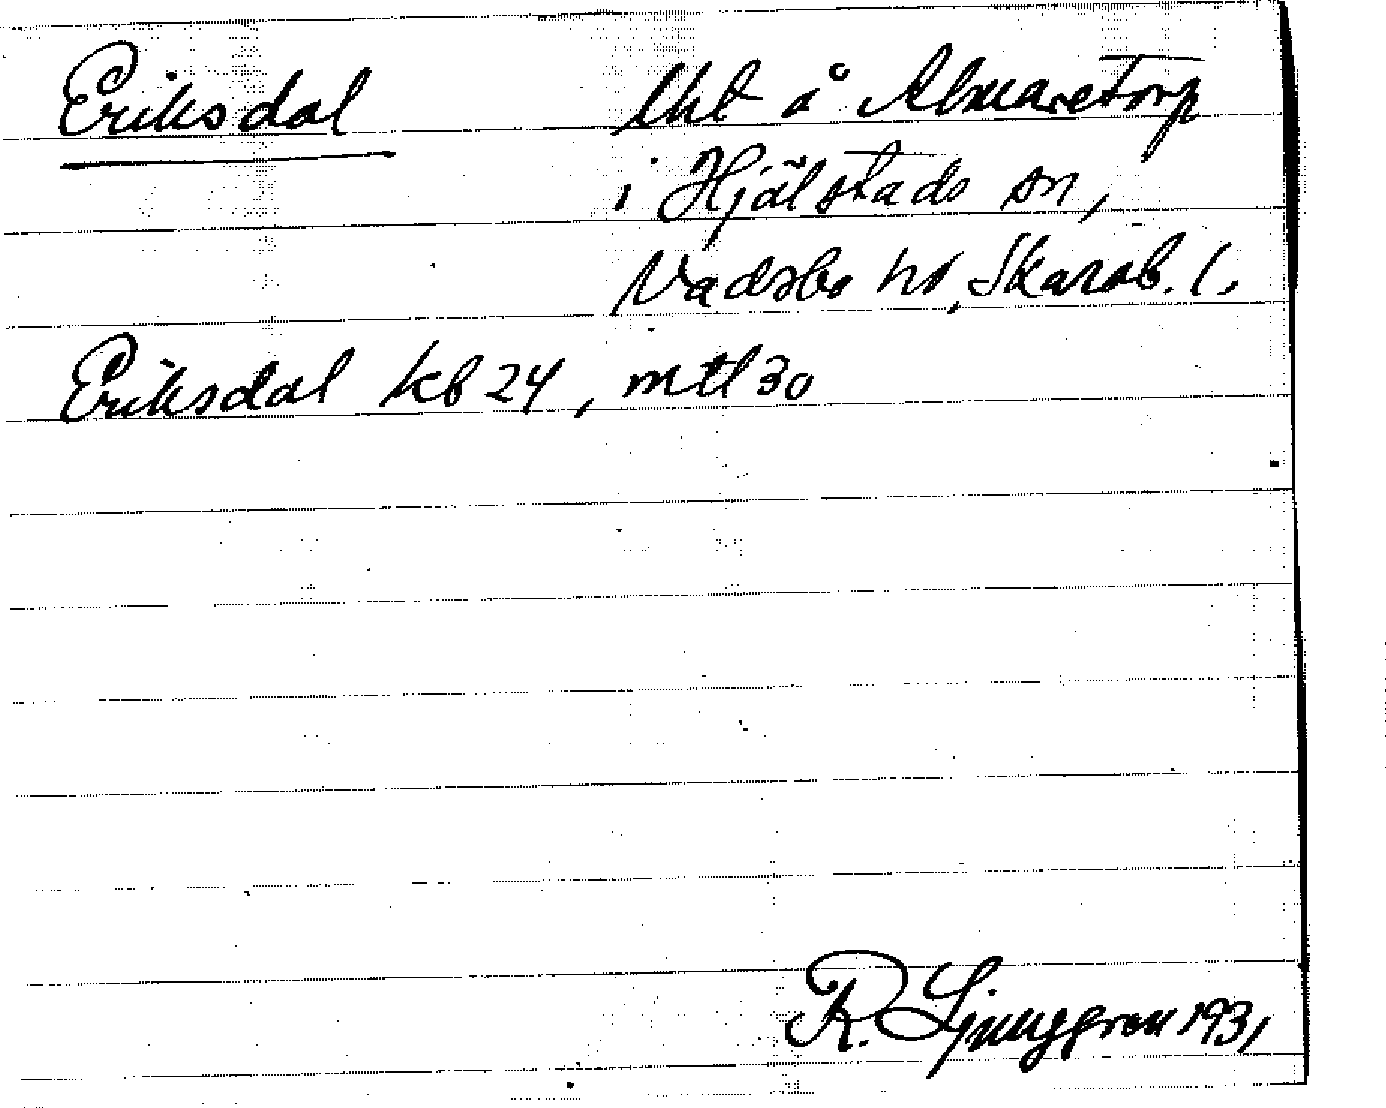 Eriksdal lht å Almaretorp
i Hjälstads sn,
Vadsbo hd, Skarab. l.
Eriksdal kb 24, mtl 30
R. Ljunggren 1931